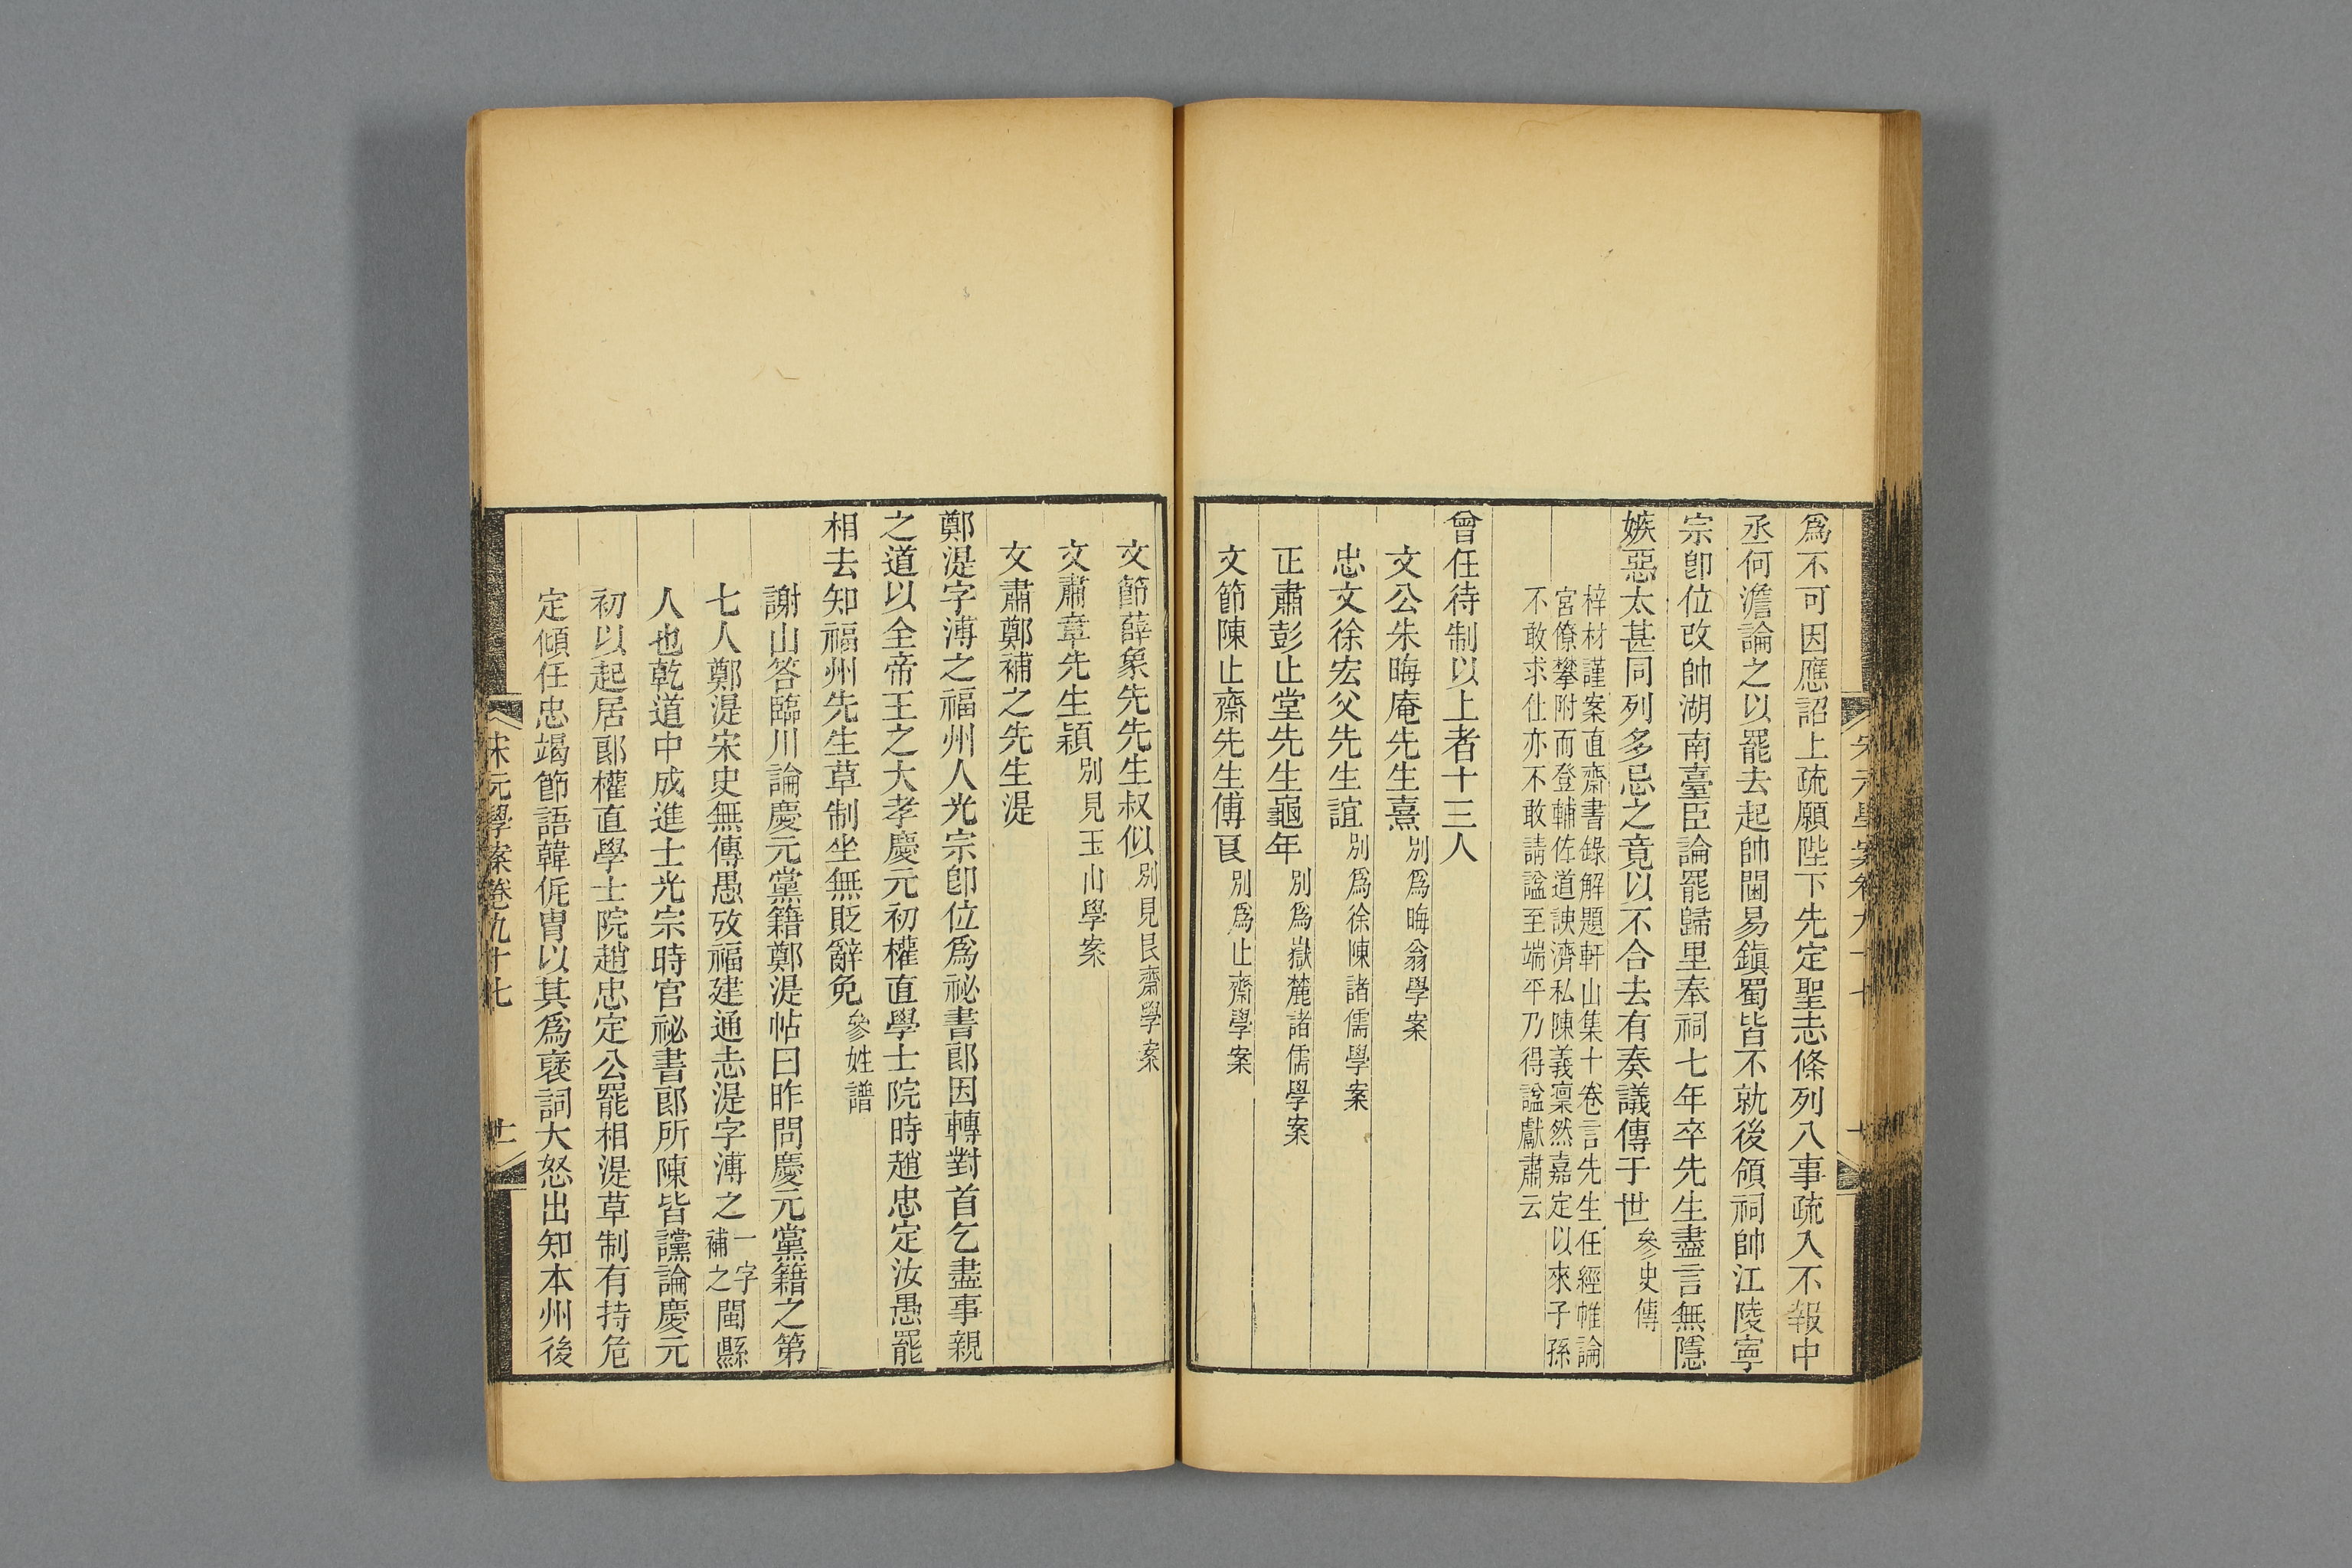 爲不可因應詔上疏願陛下先定聖志條列八事疏入不報中
丞何澹論之以罷去起帥閫易鎮蜀皆不就後領祠帥江陵寧
宗卽位改帥湖南臺臣論罷歸里奉祠七年卒先生盡言無隱
嫉惡太甚同列多忌之竟以不合去有奏議傳于世參史傳
梓材謹案直齋書錄解題軒山集十卷言先生任經帷論
宮僚攀附而登輔佐道諛濟私陳義凜然嘉定以來子孫
不敢求仕亦不敢請諡至端平乃得諡獻肅云
曾任待制以上者十三人
文公朱晦庵先生熹別爲晦翁學案
忠文徐宏父先生誼別爲徐陳諸儒學案
正肅彭止堂先生龜年別爲嶽麓諸儒學案
文節陳止齋先生傅良別爲止齋學案
文節薛象先先生叔似別見艮齋學案
文肅章先生穎別見玉山學案
文肅鄭補之先生湜
鄭湜字溥之福州人光宗卽位爲祕書郎因轉對首乞盡事親
之道以全帝王之大孝慶元初權直學士院時趙忠定汝愚罷
相去知福州先生草制坐無貶辭免參姓譜
謝山答臨川論慶元黨籍鄭湜帖曰昨問慶元黨籍之第
七人鄭湜宋史無傳愚攷福建通志湜字溥之一字補之閩縣
人也乾道中成進士光宗時官祕書郎所陳皆讜論慶元
初以起居郎權直學士院趙忠定公罷相湜草制有持危
定傾任忠竭節語韓侂冑以其爲襃詞大怒出知本州後
宋元學案卷九十七